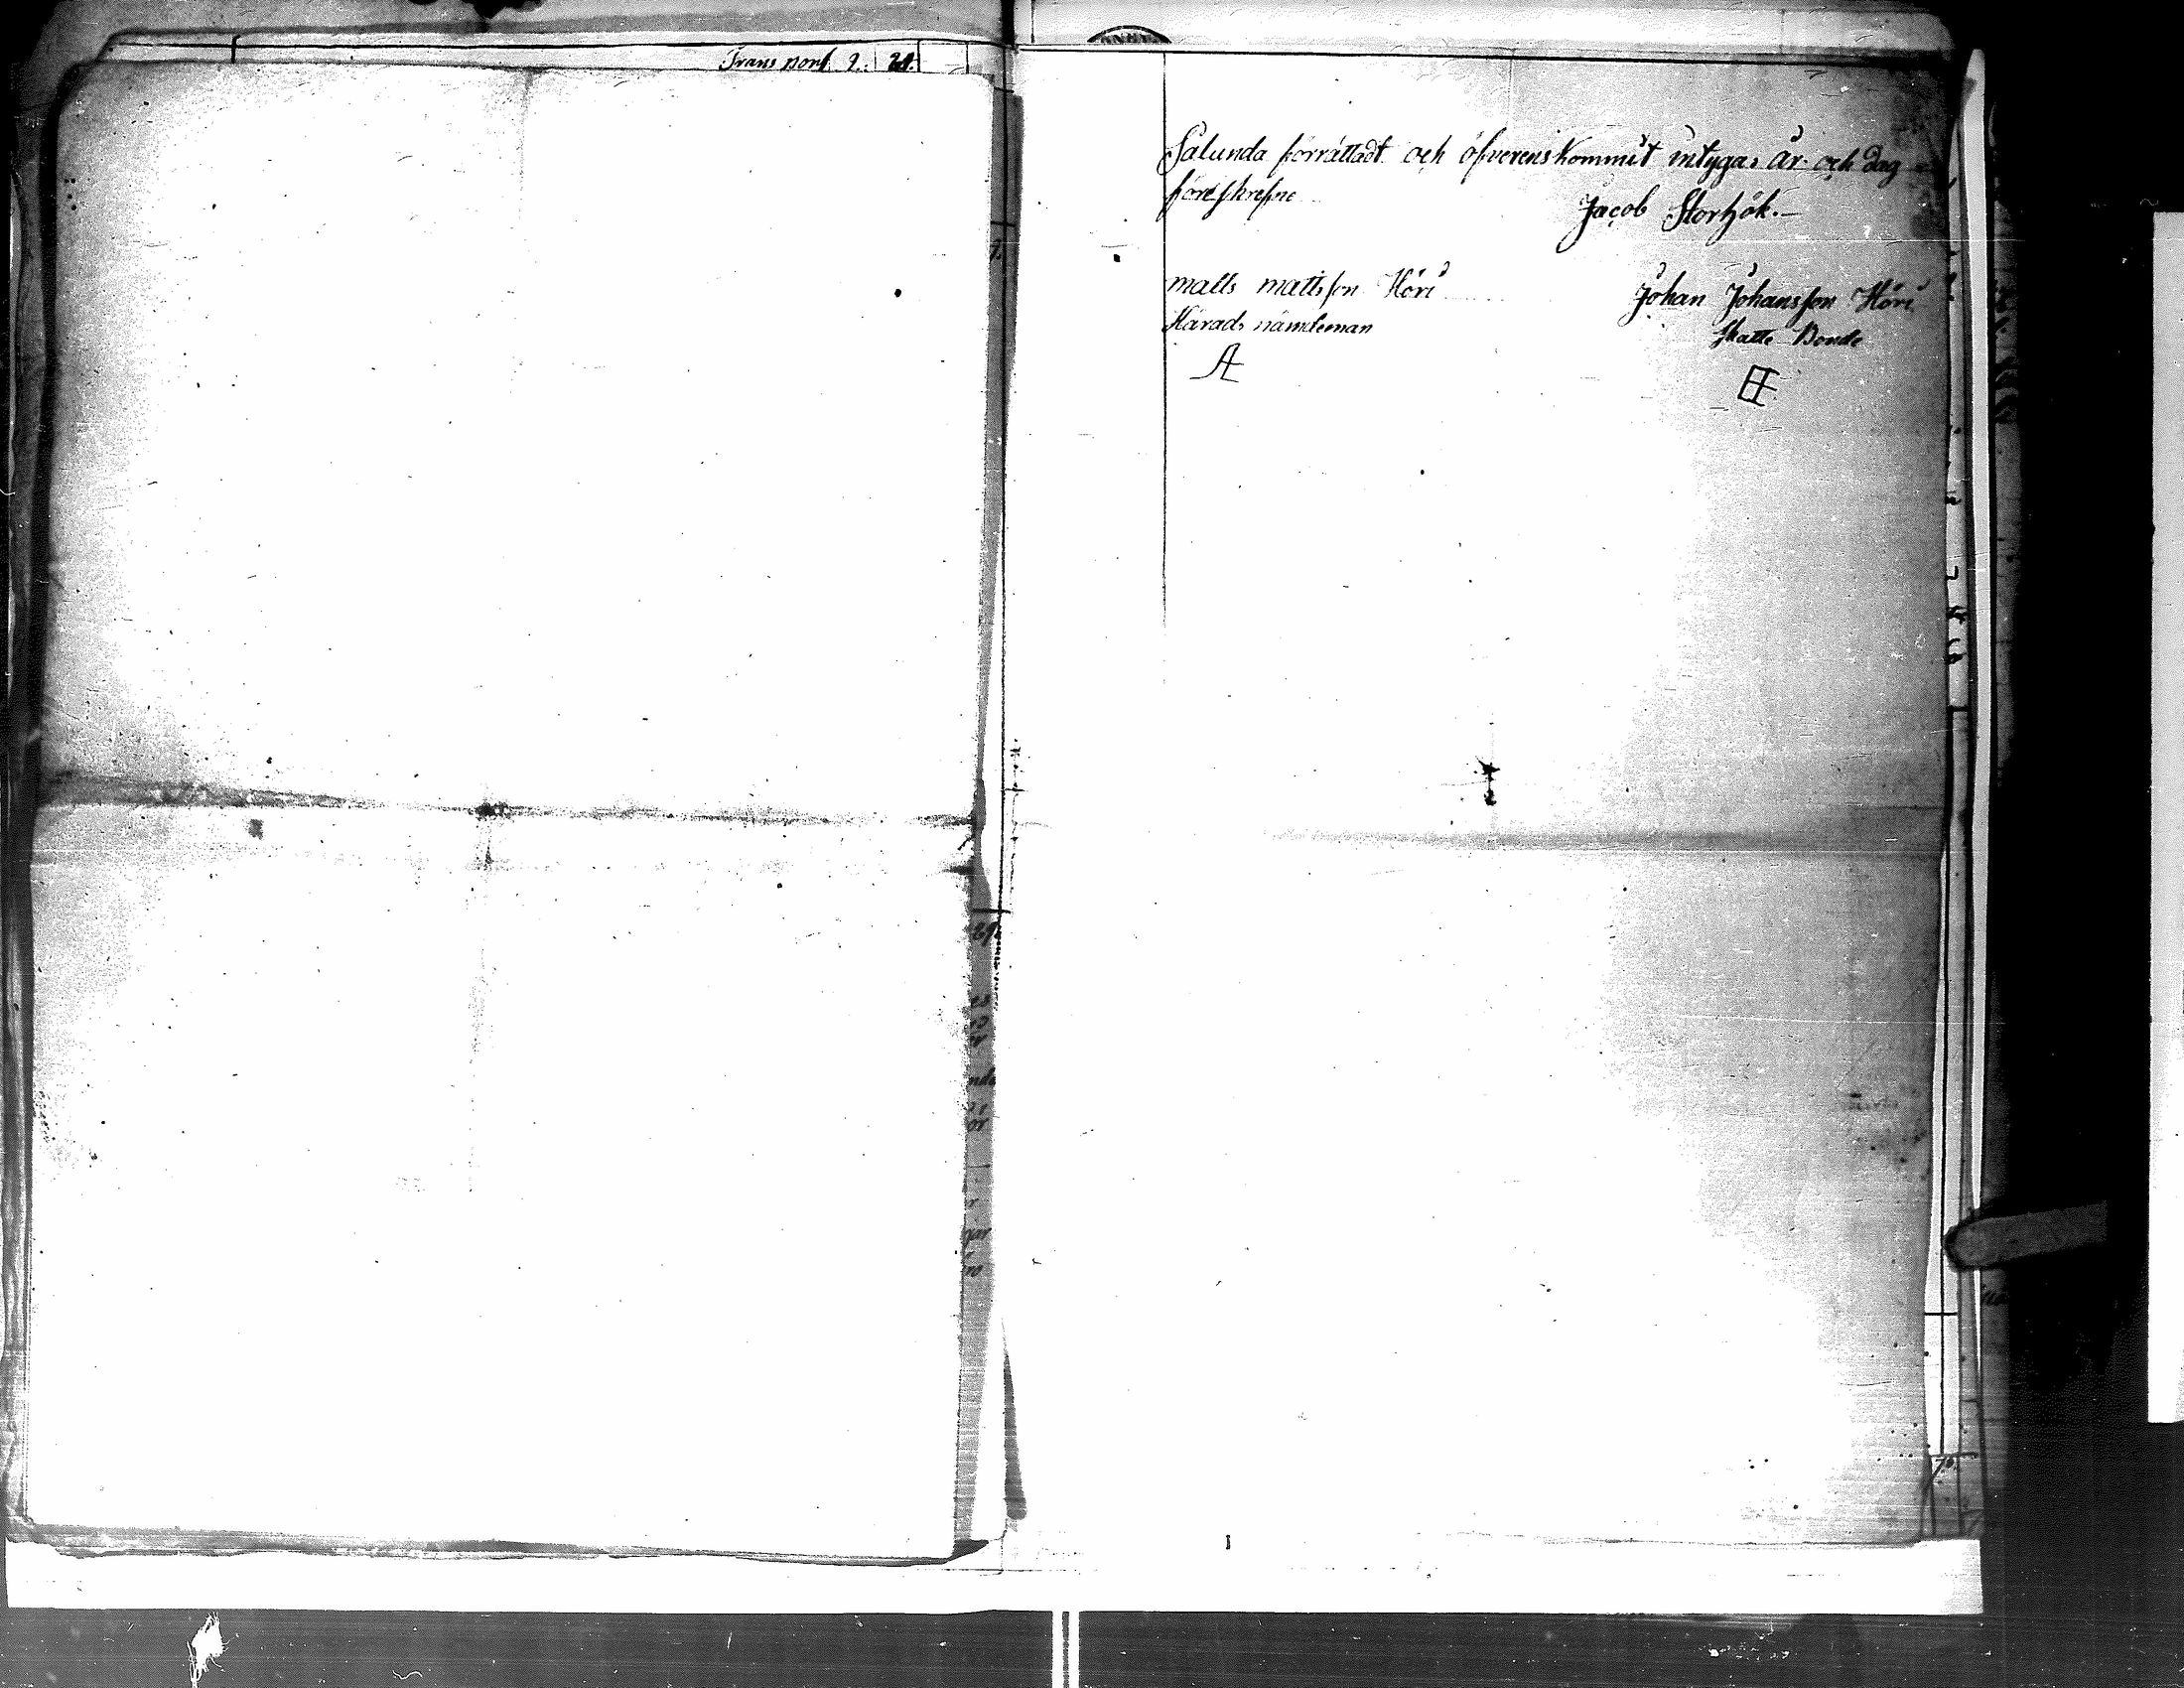 Transport 2. 24.
Sålunda förrättadt och öfverenskommit intygas år och dag
föreskrefne
Jacob Storhök.
matts mattsson Höri
Johan Johansson Höri
Härads nämdeman
Skatte Bonde